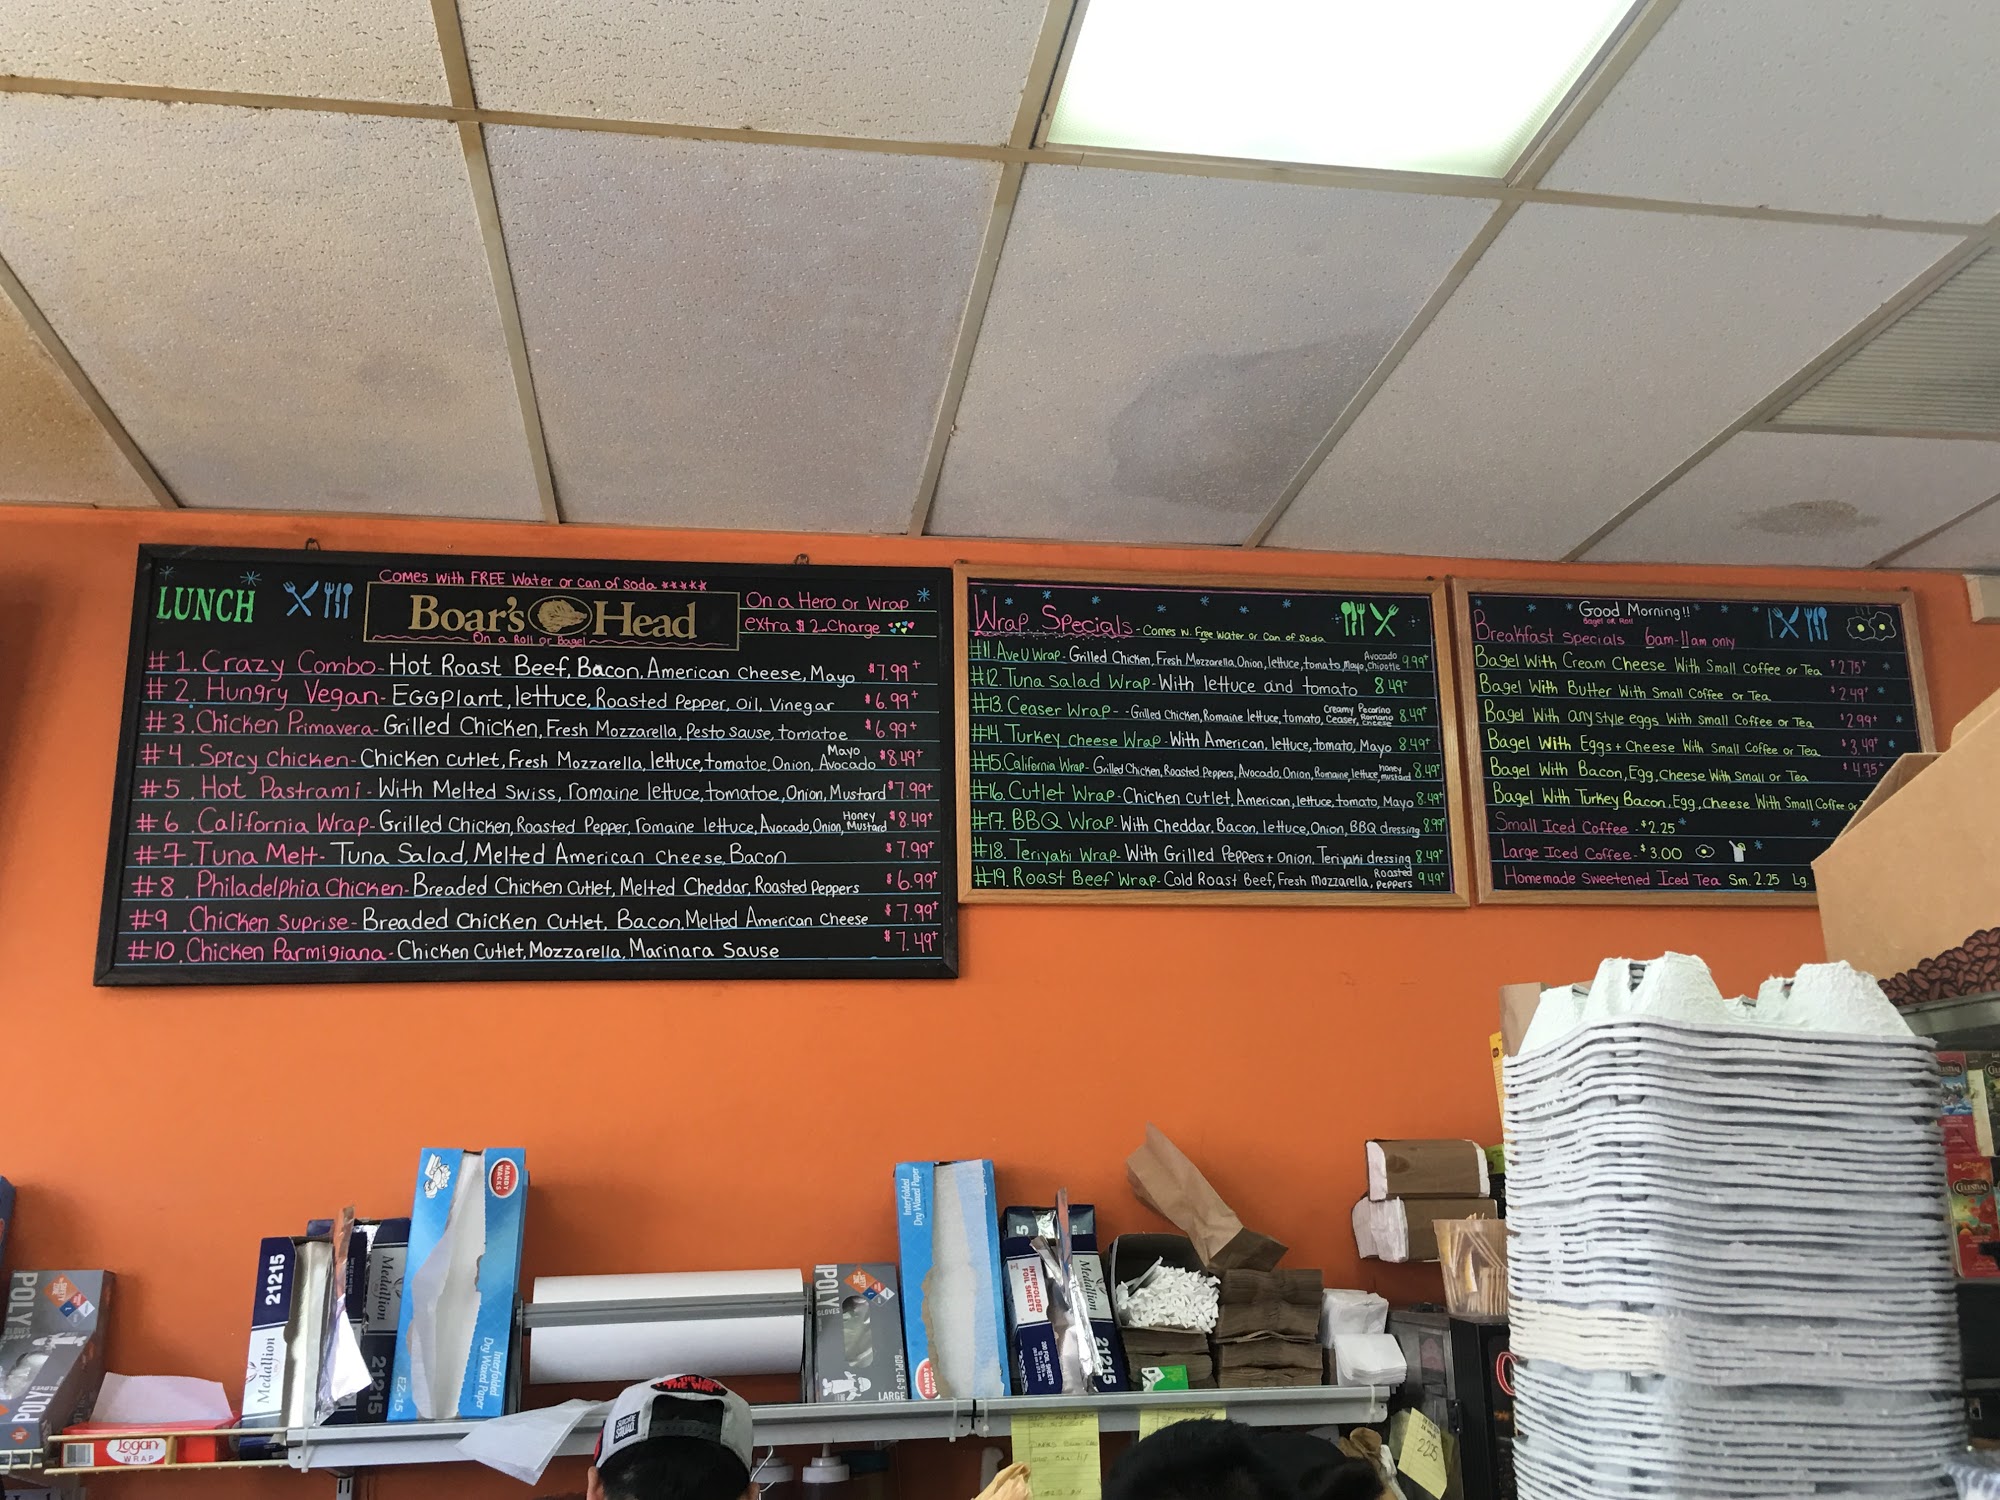 LUNCH
Comes with FREE Water or can of soda
Boar's Head
On a Roll or Bagel
On a Hero or Wrap
extra $2.. Charge
#1. Crazy Combo - Hot Roast Beef, Bacon, American Cheese, Mayo $7.99+
#2. Hungry Vegan - EGGPlant, lettuce, Roasted Pepper, Oil, Vinegar $6.99+
#3. Chicken Primavera - Grilled Chicken, Fresh Mozzarella, Pesto sause, tomatoe $6.99+
#4. Spicy Chicken - Chicken cutlet, Fresh Mozzarella, lettuce, tomatoe, Onion, Mayo Avocado $8.49+
#5. Hot Pastrami - With Melted Swiss, romaine lettuce, tomatoe, Onion, Mustard $7.99+
#6. California Wrap - Grilled Chicken, Roasted Pepper, romaine lettuce, Avocado, Onion, Honey Mustard $8.49+
#7. Tuna Melt - Tuna Salad, Melted American Cheese, Bacon $7.99+
#8. Philadelphia Chicken - Breaded Chicken Cutlet, Melted Cheddar, Roasted Peppers $6.99+
#9. Chicken Suprise - Breaded Chicken Cutlet, Bacon, Melted American Cheese $7.99+
#10. Chicken Parmigiana - Chicken Cutlet, Mozzarella, Marinara Sause $7.49+
Wrap Specials - Comes w. Free Water or Can of Soda
#11. Ave U Wrap - Grilled Chicken, Fresh Mozzarella, Onion, lettuce, tomato, Mayo, Avocado Chipotle 9.99+
#12. Tuna Salad Wrap - With lettuce and tomato 8.49+
#13. Ceaser Wrap - - Grilled Chicken, Romaine lettuce, tomato, Creamy Ceaser, Pecorino Romano cheese 8.49+
#14. Turkey cheese Wrap - With American, lettuce, tomato, Mayo 8.49+
#15. California Wrap - Grilled Chicken, Roasted Peppers, Avocado, Onion, Romaine, lettuce, honey mustard 8.49+
#16. Cutlet Wrap - Chicken cutlet, American, lettuce, tomato, Mayo 8.49+
#17. BBQ Wrap - With Cheddar, Bacon, lettuce, Onion, BBQ dressing 8.99+
#18. Teriyaki Wrap - With Grilled Peppers + Onion, Teriyaki dressing 8.49+
#19. Roast Beef Wrap - Cold Roast Beef, Fresh Mozzarella, Roasted Peppers 9.49+
Good Morning!!
Bagel or Roll
Breakfast Specials 6am-11am only
Bagel With Cream Cheese With Small Coffee or Tea $2.75+
Bagel With Butter With Small Coffee or Tea $2.49+
Bagel With any style eggs With Small Coffee or Tea $2.99+
Bagel With Eggs + Cheese With Small Coffee or Tea $3.49+
Bagel With Bacon, Egg, Cheese With Small or Tea $4.75+
Bagel With Turkey Bacon, Egg, Cheese With Small Coffee or
Small Iced Coffee - $2.25
Large Iced Coffee - $3.00
Homemade Sweetened Iced Tea Sm. 2.25 Lg.
POLY
POLY
Logan
WRAP
21215
Medallion
Medallion
21215
HANDY WACKS
Interfolded
Dry Waxed Paper
EZ-15
POLY
GLOVES
LARGE
Interfolded
Dry Waxed Paper
INTERFOLDED
FOIL SHEETS
Medallion
21215
SUICIDE SQUAD
2225